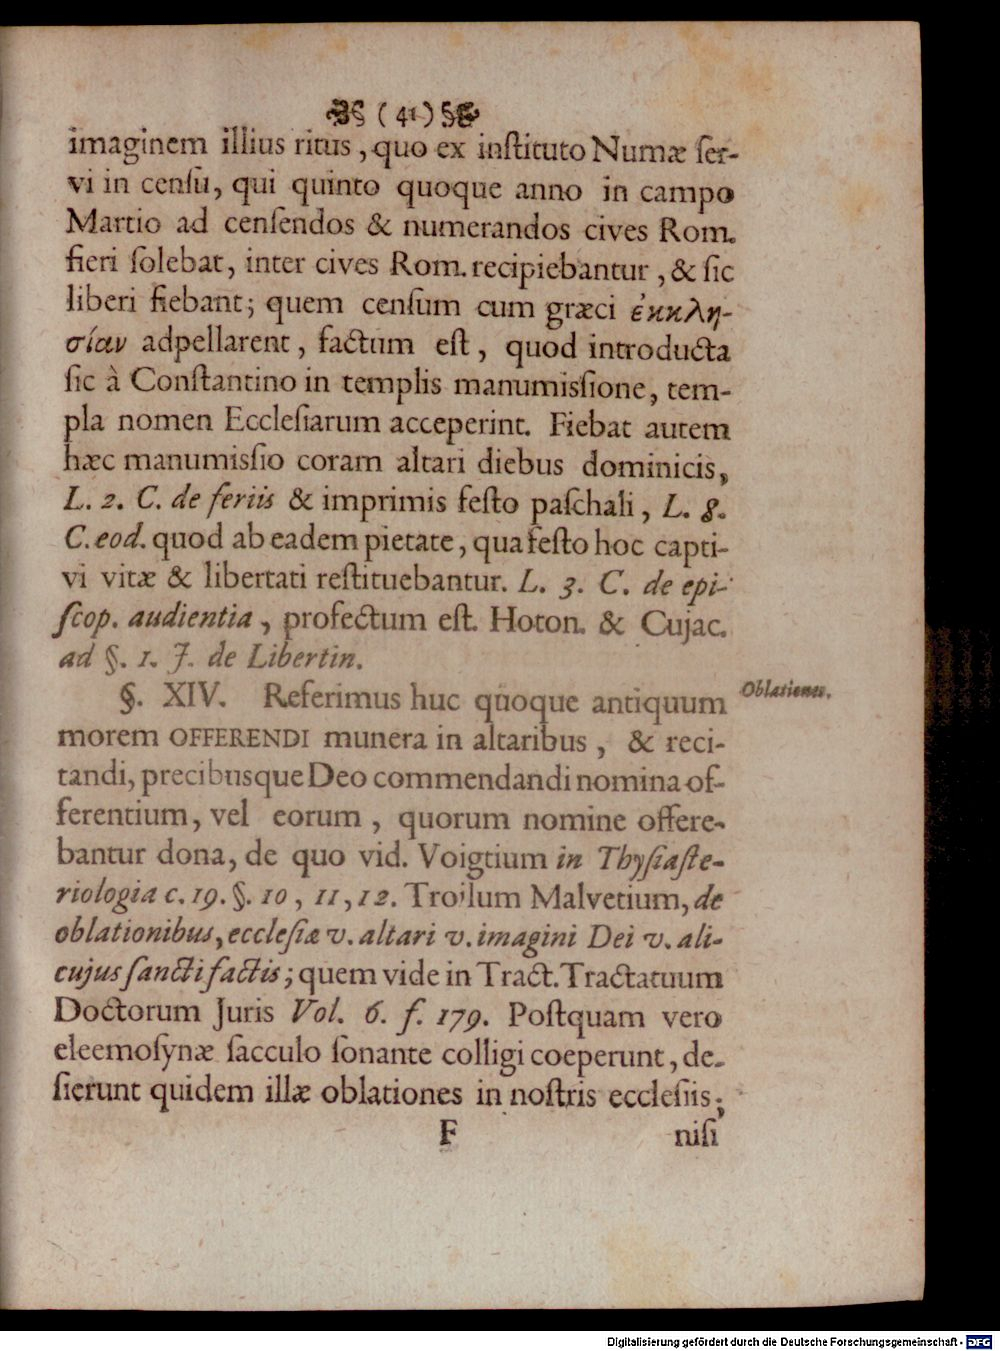 ( 41 )
imaginem illius ritus, quo ex inſtituto Numæ ſer-
vi in cenſu, qui quinto quoque anno in campo
Martio ad cenſendos & numerandos cives Rom.
fieri ſolebat, inter cives Rom. recipiebantur, & ſic
liberi fiebant; quem cenſum cum græci ἐκκλη-
σίαν adpellarent, factum eſt, quod introducta
ſic à Conſtantino in templis manumisſione, tem-
pla nomen Eccleſiarum acceperint. Fiebat autem
hæc manumisſio coram altari diebus dominicis,
L. 2. C. de feriis & imprimis feſto paſchali, L. 8.
C. eod. quod ab eadem pietate, qua feſto hoc capti-
vi vitæ & libertati reſtituebantur. L. 3. C. de epi-
ſcop. audientia, profectum eſt. Hoton. & Cujac.
ad §. 1. J. de Libertin.
§. XIV. Referimus huc quoque antiquum
Oblationes.
morem OFFERENDI munera in altaribus, & reci-
tandi, precibusque Deo commendandi nomina of-
ferentium, vel eorum, quorum nomine offere-
bantur dona, de quo vid. Voigtium in Thyſiaſte-
riologia c. 19. §. 10, 11, 12. Troilum Malvetium, de
oblationibus, eccleſiæ v. altari v. imagini Dei v. ali-
cujus ſancti factis; quem vide in Tract. Tractatuum
Doctorum Juris Vol. 6. f. 179. Poſtquam vero
eleemoſynæ ſacculo ſonante colligi coeperunt, de-
ſierunt quidem illæ oblationes in noſtris eccleſiis;
F
niſi
Digitalisierung gefördert durch die Deutsche Forschungsgemeinschaft - DFG